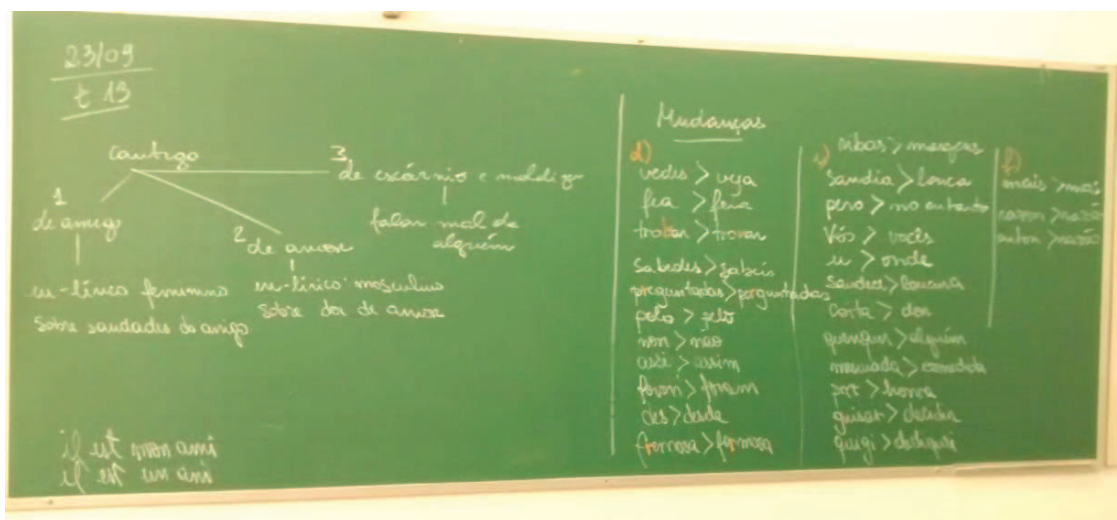 23/09
t 13
cantiga
1
de amigo
eu-lírico feminino
sobre saudades do amigo
2
de amor
eu-lírico masculino
sobre dor de amor
3
de escárnio e maldizer
falar mal de
alguém
il est mon ami
il est un ami
Mudanças
d)
vedes > veja
fea > feia
trobar > trovar
sabedes > sabeis
preguntades > perguntades
pelo > pelo
non > não
assi > assim
foron > foram
des > desde
fremosa > formosa
ribas > margens
sandia > louca
pero > no entanto
Vós > vocês
u > onde
sandece > loucura
coita > dor
quenquer > alguém
prez > honra
guisar > decidir
f)
mais > mas
razon > razão